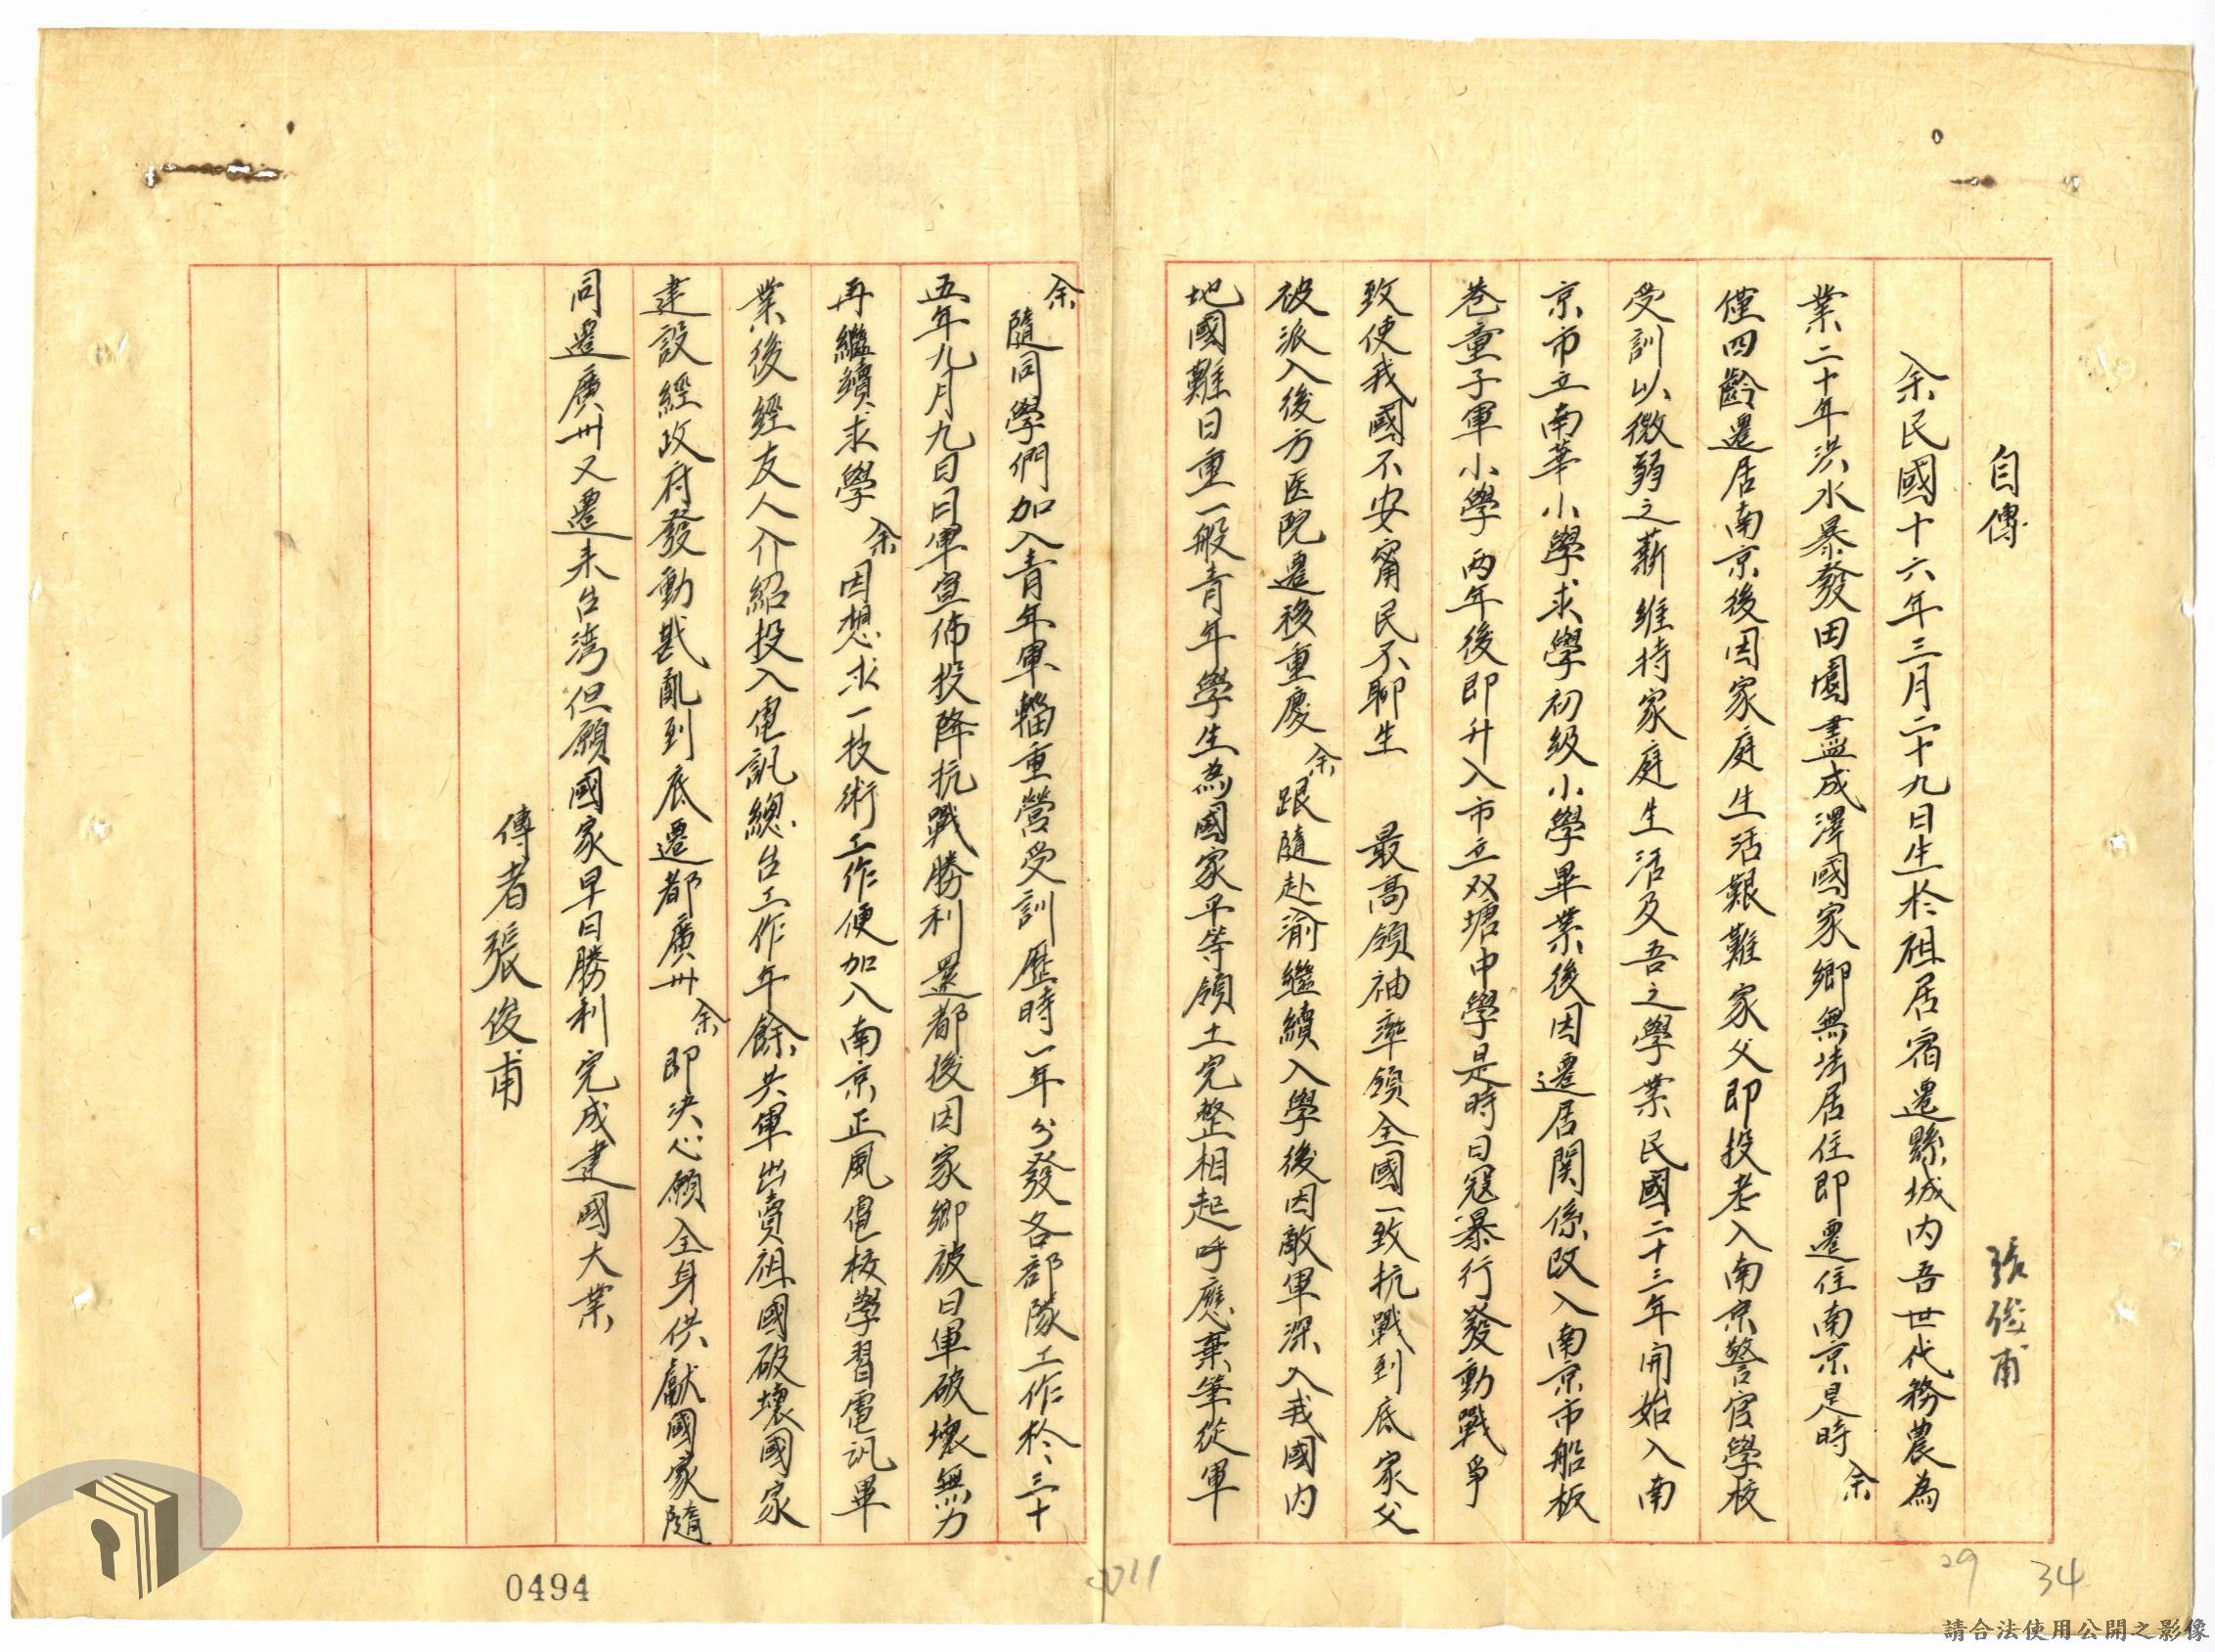 自傳　張俊甫
余民國十六年三月二十九日生於祖居宿遷縣城内吾世代務農為
業二十年洪水暴發田園盡成澤國家鄉無法居住即遷住南京是時余
僅四齡遷居南京後因家庭生活艱難家父即投考入南京警官學校
受訓以微弱之薪維持家庭生活及吾之學業民國二十三年開始入南
京市立南華小學求學初級小學畢業後因遷居関係改入南京市船板
巷童子軍小學兩年後即升入市立双塘中學是時日寇暴行發動戰爭
致使我國不安甯民不聊生　最高領袖率領全國一致抗戰到底家父
被派入後方医院遷移重慶余跟隨赴渝繼續入學後因敵軍深入我國内
地國難日重一般青年學生為國家平等領土完整相起呼應棄筆從軍
余隨同學們加入青年軍輜重營受訓歷時一年分發各部隊工作於三十
五年九月九日日軍宣佈投降抗戰勝利還都後因家鄉被日軍破壞無力
再繼續求學余因想求一技術工作便加入南京正風電校學習電訊畢
業後經友人介紹投入電訊總台工作年餘共軍出賣祖國破壞國家
建設經政府發動戡亂到底遷都廣州余即決心願全身供獻國家隨
同遷廣州又遷來台湾但願國家早日勝利完成建國大業
傳者張俊甫
0494
0011
29
34
請合法使用公開之影像